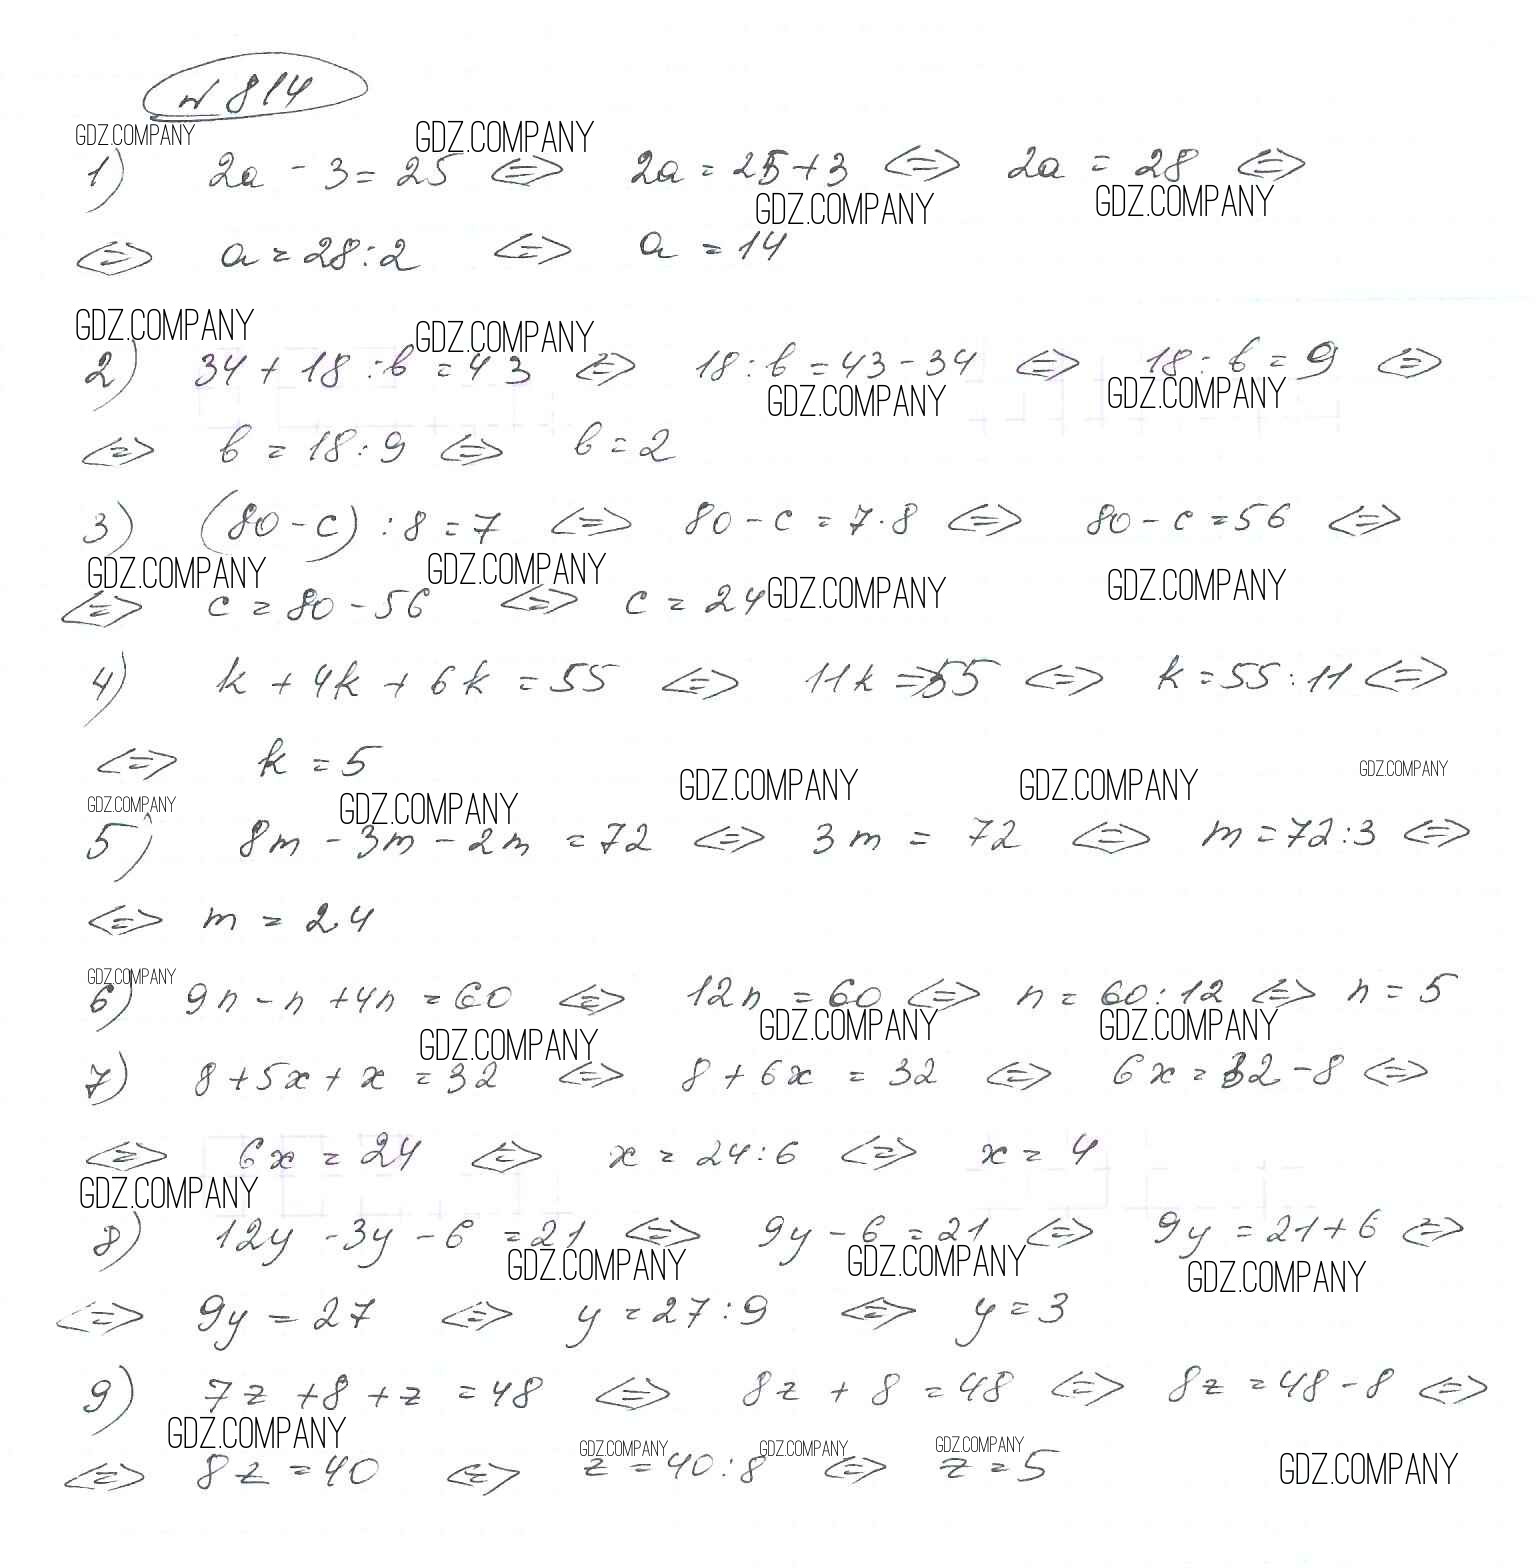 № 814
GDZ.COMPANY GDZ.COMPANY
1) 2a - 3 = 25 <=> 2a = 25 + 3 <=> 2a = 28 <=>
GDZ.COMPANY GDZ.COMPANY
<=> a = 28 : 2 <=> a = 14
GDZ.COMPANY GDZ.COMPANY
2) 34 + 18 : b = 43 <=> 18 : b = 43 - 34 <=> 18 : b = 9 <=>
GDZ.COMPANY GDZ.COMPANY
<=> b = 18 : 9 <=> b = 2
3) (80 - c) : 8 = 7 <=> 80 - c = 7 · 8 <=> 80 - c = 56 <=>
GDZ.COMPANY GDZ.COMPANY GDZ.COMPANY GDZ.COMPANY
<=> c = 80 - 56 <=> c = 24
4) k + 4k + 6k = 55 <=> 11k = 55 <=> k = 55 : 11 <=>
<=> k = 5
GDZ.COMPANY GDZ.COMPANY GDZ.COMPANY GDZ.COMPANY GDZ.COMPANY
5) 8m - 3m - 2m = 72 <=> 3m = 72 <=> m = 72 : 3 <=>
<=> m = 24
GDZ.COMPANY
6) 9n - n + 4n = 60 <=> 12n = 60 <=> n = 60 : 12 <=> n = 5
GDZ.COMPANY GDZ.COMPANY GDZ.COMPANY
7) 8 + 5x + x = 32 <=> 8 + 6x = 32 <=> 6x = 32 - 8 <=>
<=> 6x = 24 <=> x = 24 : 6 <=> x = 4
GDZ.COMPANY
8) 12y - 3y - 6 = 21 <=> 9y - 6 = 21 <=> 9y = 21 + 6 <=>
GDZ.COMPANY GDZ.COMPANY GDZ.COMPANY
<=> 9y = 27 <=> y = 27 : 9 <=> y = 3
9) 7z + 8 + z = 48 <=> 8z + 8 = 48 <=> 8z = 48 - 8 <=>
GDZ.COMPANY GDZ.COMPANY GDZ.COMPANY GDZ.COMPANY GDZ.COMPANY
<=> 8z = 40 <=> z = 40 : 8 <=> z = 5